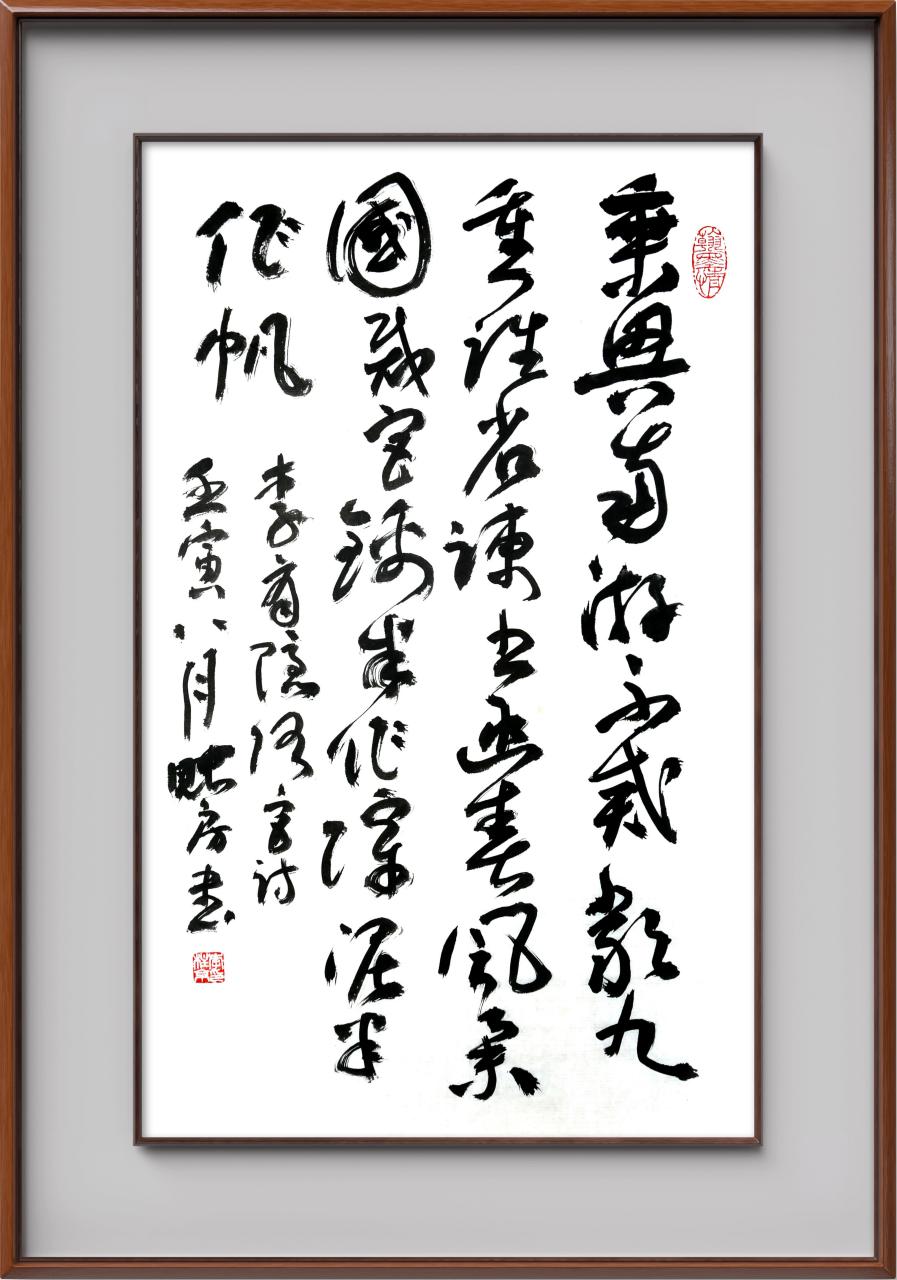 乘興南游不戒嚴九
重誰省諫書函春風舉
國裁宮錦半作障泥半
作帆
李商隱隋宮詩
壬寅八月房書